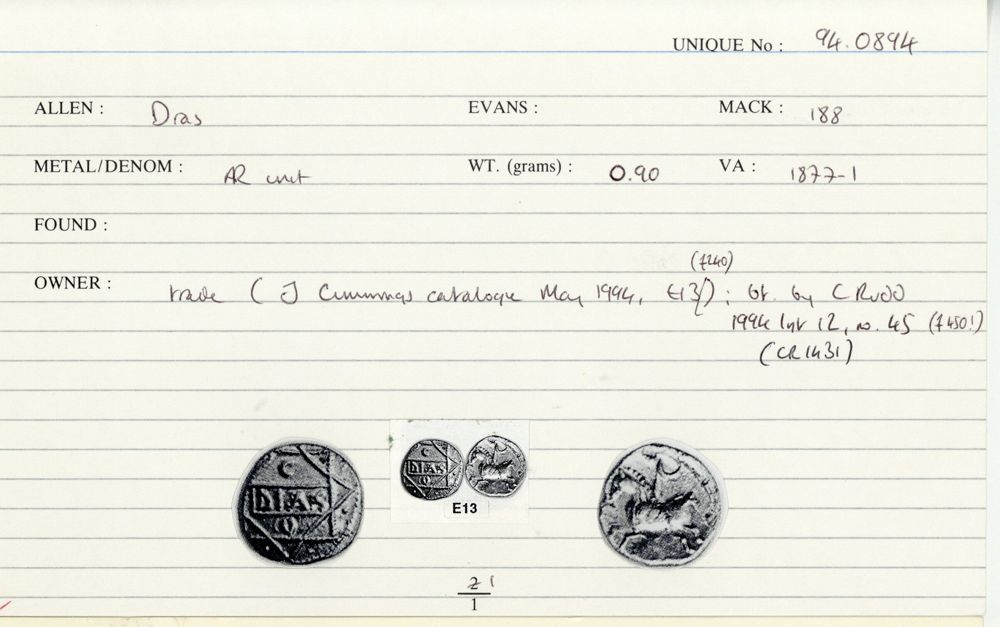 UNIQUE No : 94.0894
ALLEN : Dias EVANS : MACK : 188
METAL/DENOM : AR unit WT. (grams) : 0.90 VA : 1877-1
FOUND :
(£240)
OWNER : trade ( J Cummings catalogue May 1994, E13) ; by C Rudd
1994 list 12, no. 45 (£450!)
(CR1431)
C
DIAS
O
C
DIAS
O
E13
2 1
1